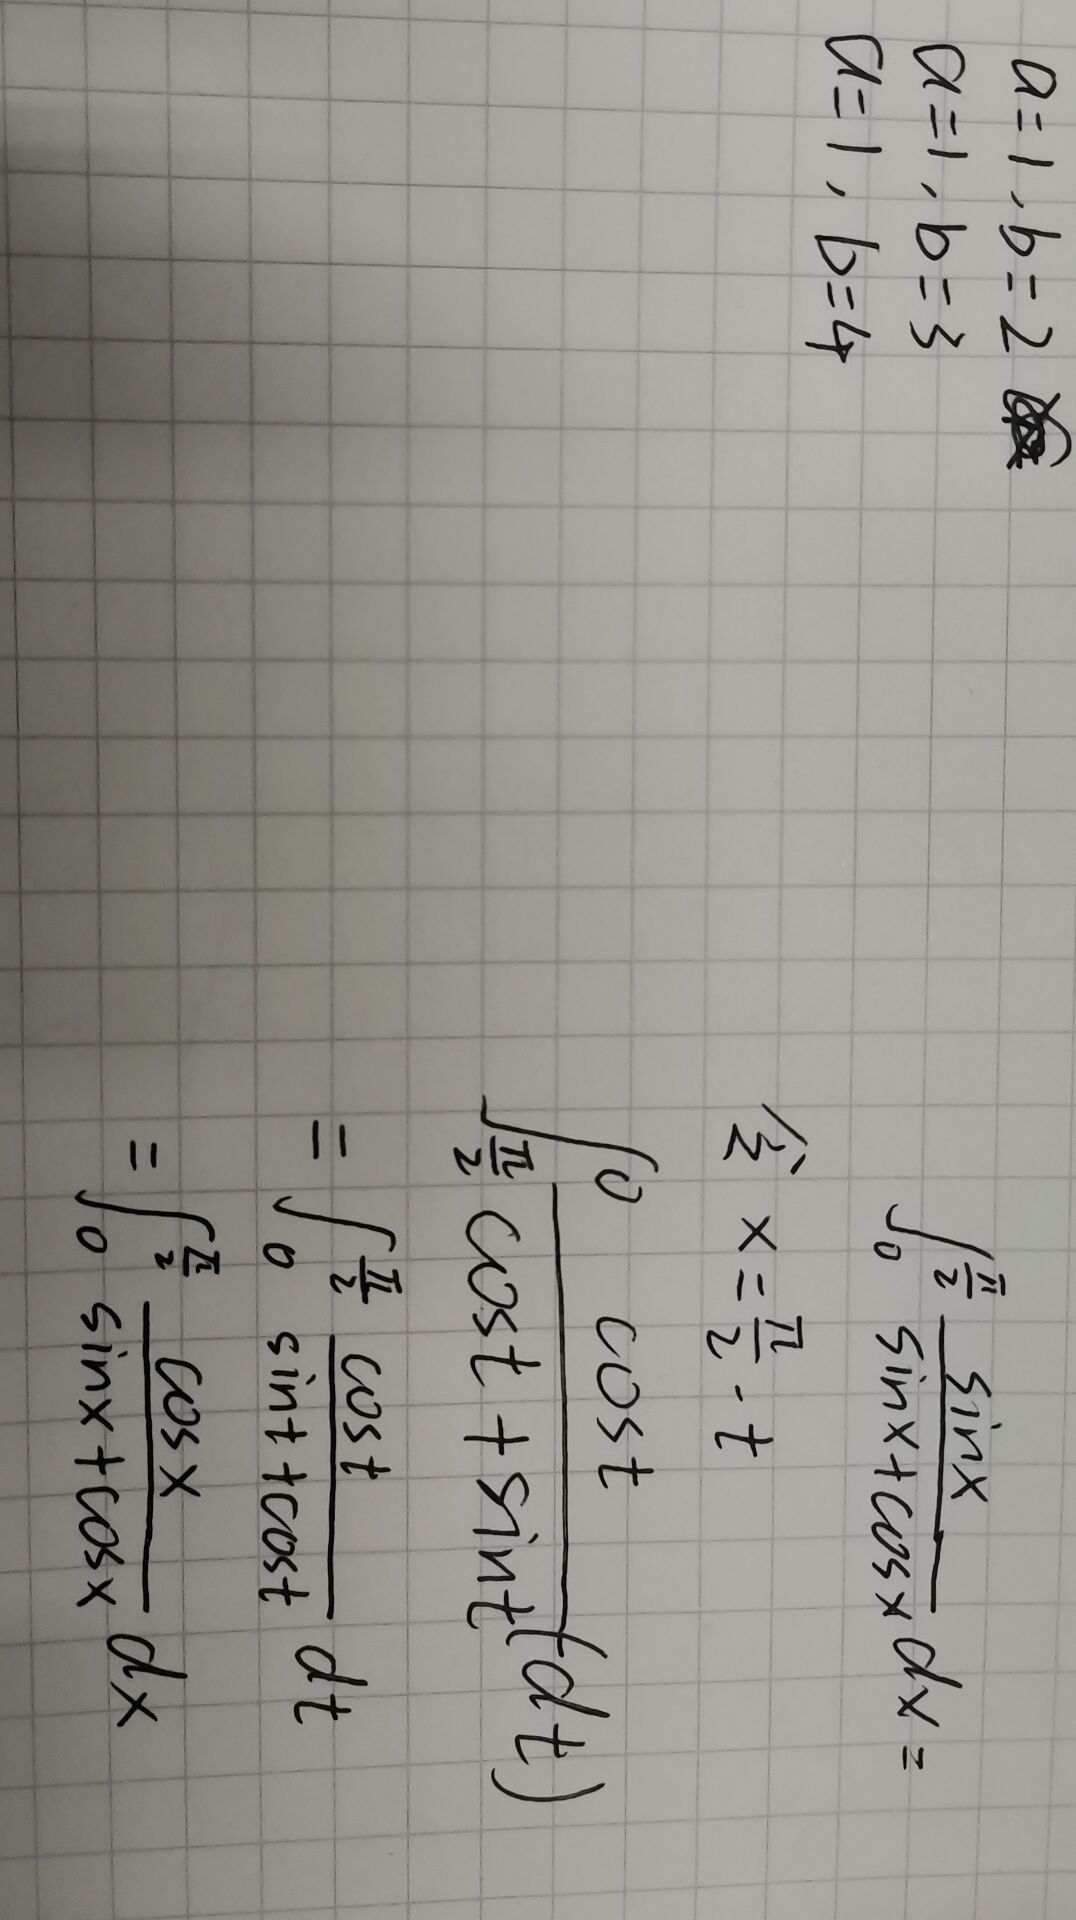 a=1, b=2
a=1, b=3
a=1, b=4
∫₀^(π/2) sinx/(sinx+cosx) dx =
令 x = π/2 - t
∫_(π/2)^0 cost/(cost+sint) (dt)
= ∫₀^(π/2) cost/(sint+cost) dt
= ∫₀^(π/2) cosx/(sinx+cosx) dx